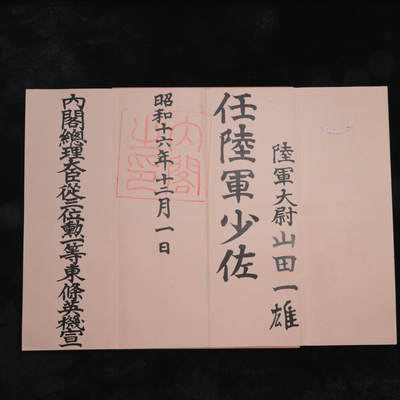 陸軍大尉山田一雄
任陸軍少佐
昭和十六年十二月一日
内閣之印
內閣總理大臣從三位勳一等東條英機宣